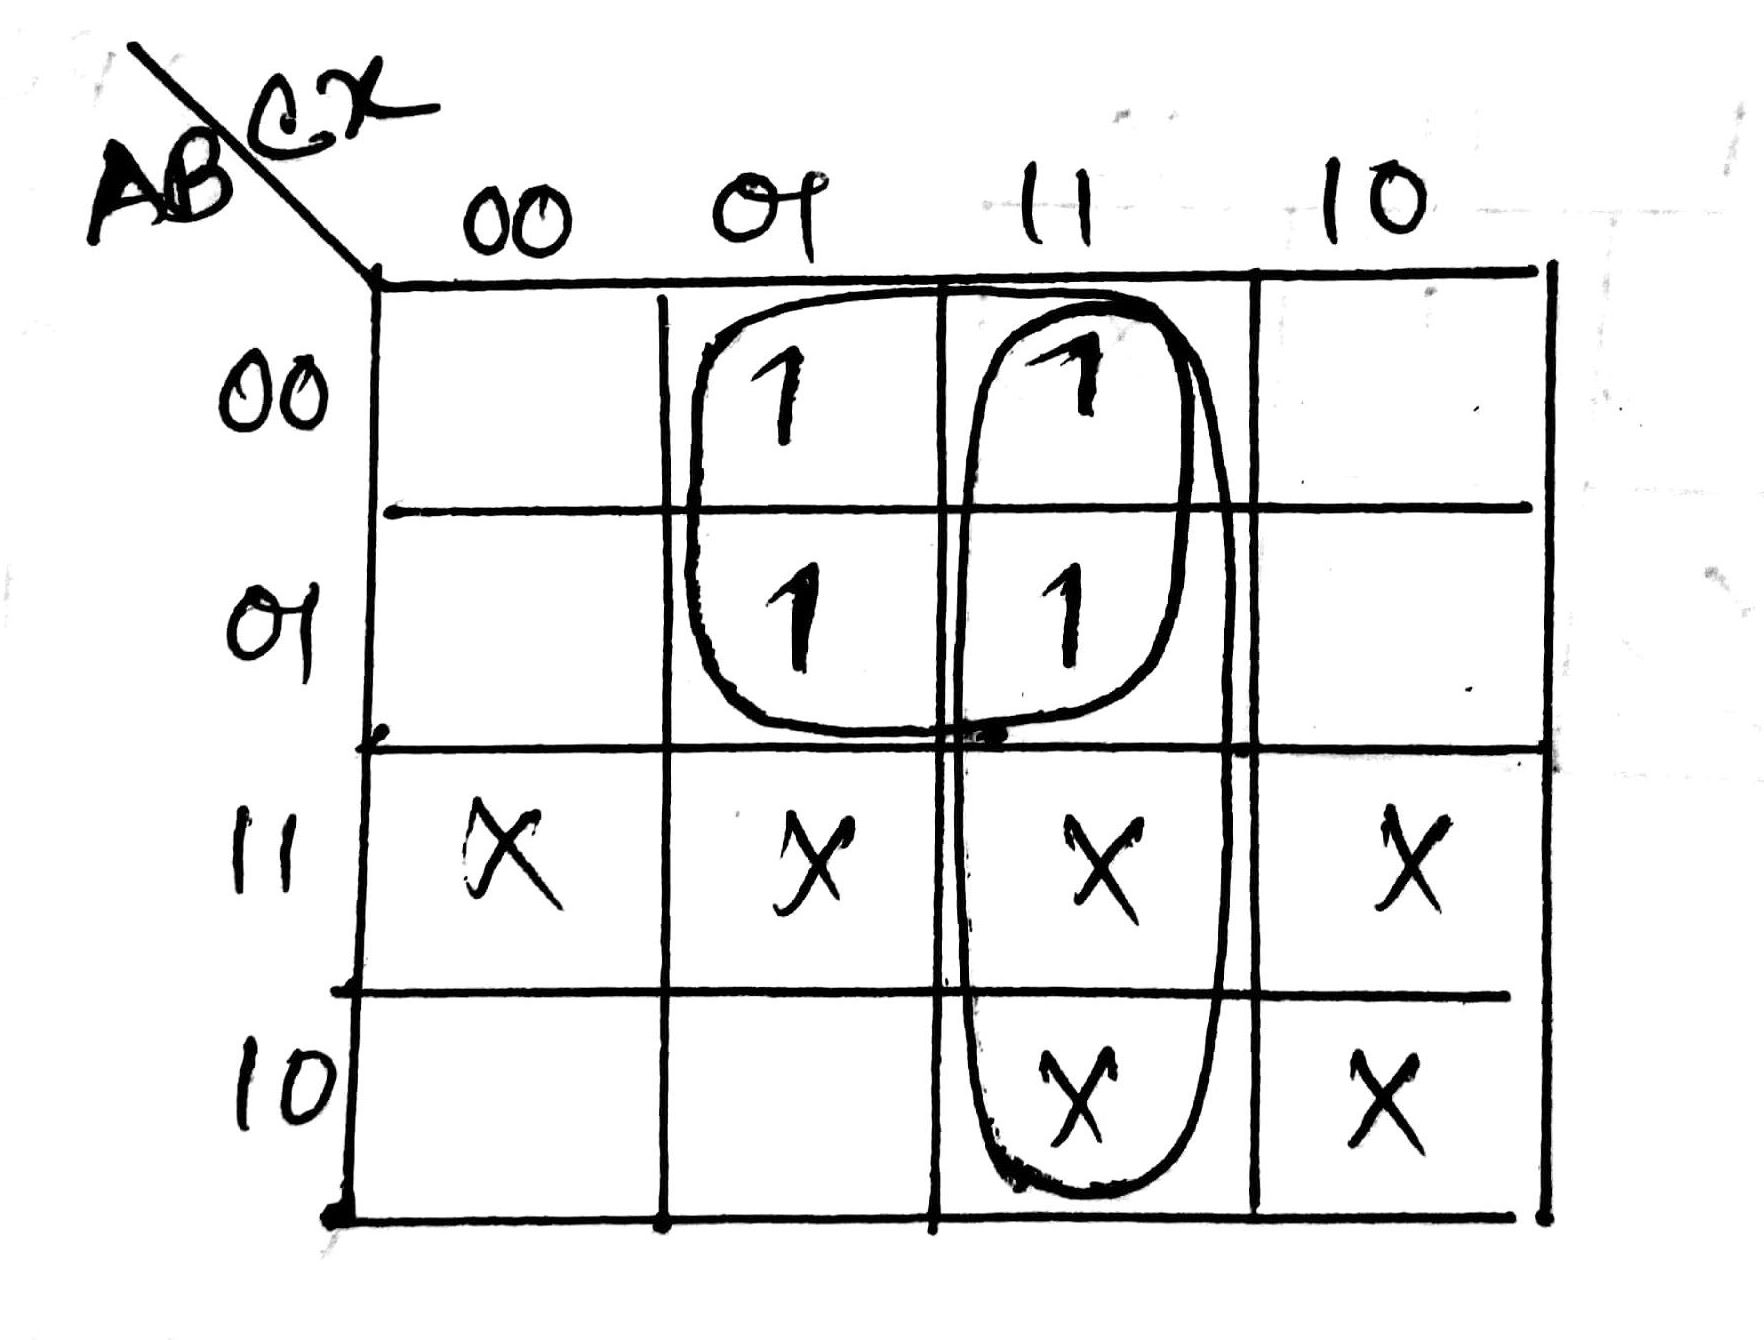 Cx
AB
00 01 11 10
00 1 1
01 1 1
11 X X X X
10 X X